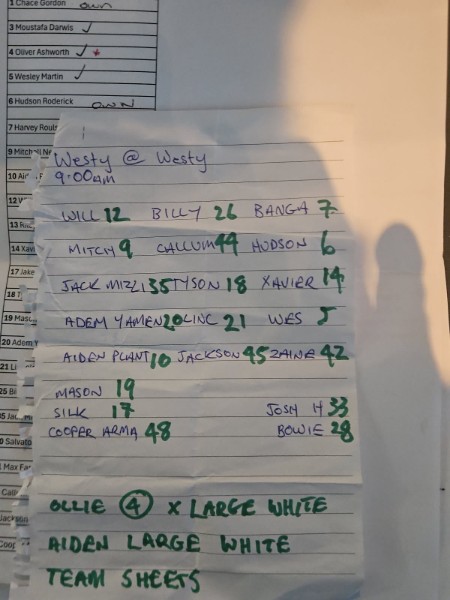 1 Chace Gordon own
3 Moustafa Darwis
4 Oliver Ashworth
5 Wesley Martin
6 Hudson Roderick own
7 Harvey
9 Mitchell
10
12
13
14
17 Jake
18
19
20 Adem
21
25
Salvato
Max
Westy @ Westy
9:00am
WILL 12 BILLY 26 BANGA 7
MITCH 9 CALLUM 44 HUDSON 6
JACK MIZZI 35 TYSON 18 XAVIER 14
ADEM YAMEN 20 LINC 21 WES 5
AIDEN PLANT 10 JACKSON 45 ZAINE 42
MASON 19
SILK 17 JOSH H 33
COOPER ARMA 48 BOWIE 28
OLLIE 4 X LARGE WHITE
AIDEN LARGE WHITE
TEAM SHEETS